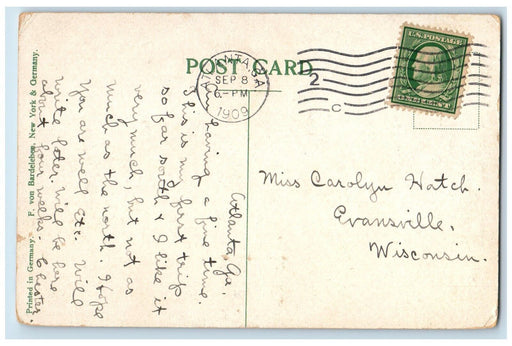 POST CARD
ATLANTA, GA
SEP 8
6-PM
1909
2
C
U.S. POSTAGE
Atlanta, Ga.
Am having a fine time.
This is my first trip
so far south & I like it
very much, but not as
much as the north. I hope
you are well etc. Will
write later will be here
about four weeks. Chester
Miss Carolyn Hatch.
Evansville,
Wisconsin.
Printed in Germany. F. von Bardeleben, New York & Germany.